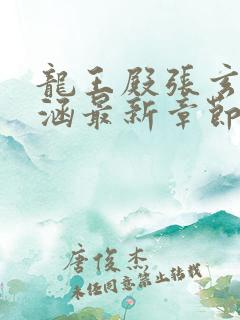 龍王殿張玄
涵最新章節
唐俊杰
未经同意禁止转载